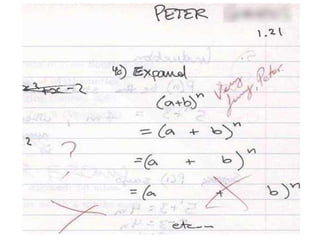 PETER
1.21
4c) Expand
(a+b)^n
= (a + b)^n
= (a + b)^n
= (a + b)^n
etc...
Very funny, Peter.
?
2